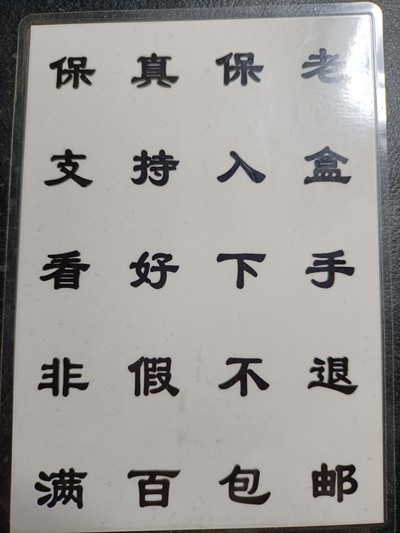 保真保老
支持入盒
看好下手
非假不退
满百包邮